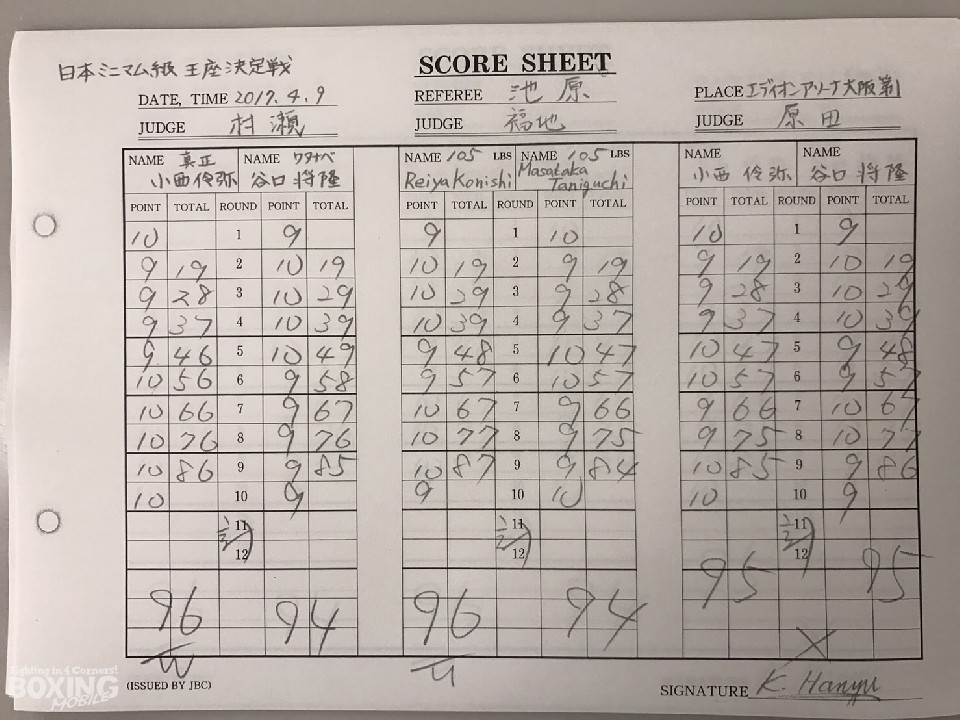 日本ミニマム級 王座決定戦
SCORE SHEET
DATE, TIME 2017.4.9
REFEREE 池原
PLACE エディオンアリーナ大阪第1
JUDGE 村瀬
JUDGE 福地
JUDGE 原田
NAME 真正 NAME ワタナベ NAME 105 LBS NAME 105 LBS NAME NAME
小西伶弥 谷口将隆 Reiya Konishi Masataka Taniguchi 小西伶弥 谷口将隆
POINT TOTAL ROUND POINT TOTAL POINT TOTAL ROUND POINT TOTAL POINT TOTAL ROUND POINT TOTAL
10 1 9 9 1 10 10 1 9
9 19 2 10 19 10 19 2 9 19 9 19 2 10 19
9 28 3 10 29 10 29 3 9 28 9 28 3 10 29
9 37 4 10 39 10 39 4 9 37 9 37 4 10 39
9 46 5 10 49 9 48 5 10 47 10 47 5 9 48
10 56 6 9 58 9 57 6 10 57 10 57 6 9 57
10 66 7 9 67 10 67 7 9 66 9 66 7 10 67
10 76 8 9 76 10 77 8 9 75 9 75 8 10 77
10 86 9 9 85 10 87 9 9 84 10 85 9 9 86
10 10 9 9 10 10 10 10 9
11 11 11
12 12 12
96 94 96 94 95 95
W W X
(ISSUED BY JBC)
SIGNATURE K. Hanyu
Fighting in 4 Corners!
BOXING
MOBILE